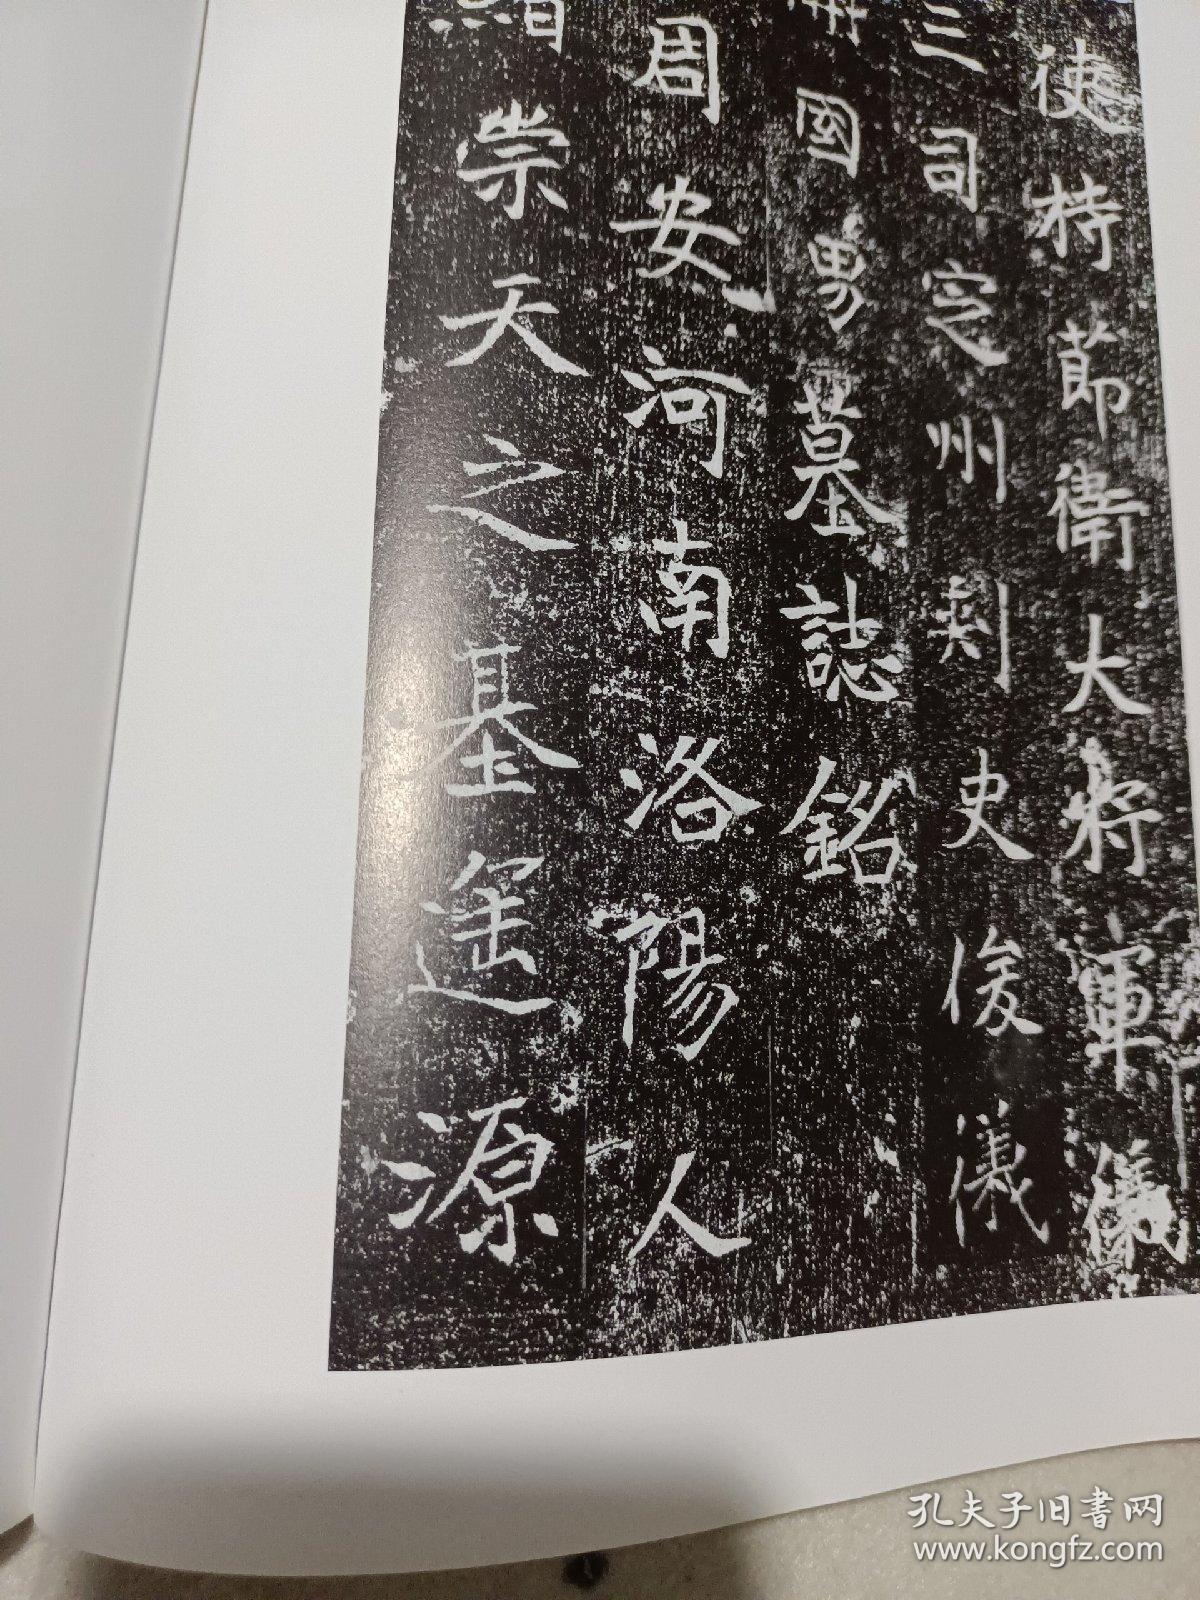 使持節衛大將軍儀
三司定州刺史俊儀
國男墓誌銘
周安河南洛陽人
崇天之基遥源
孔夫子旧书网
www.kongfz.com